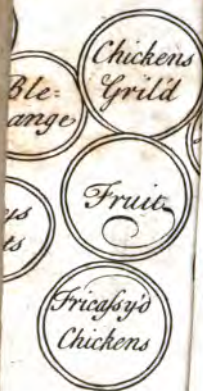 Chickens
Gril'd
Ble=
ange
Fruit
us
ts
Fricaſsy'd
Chickens